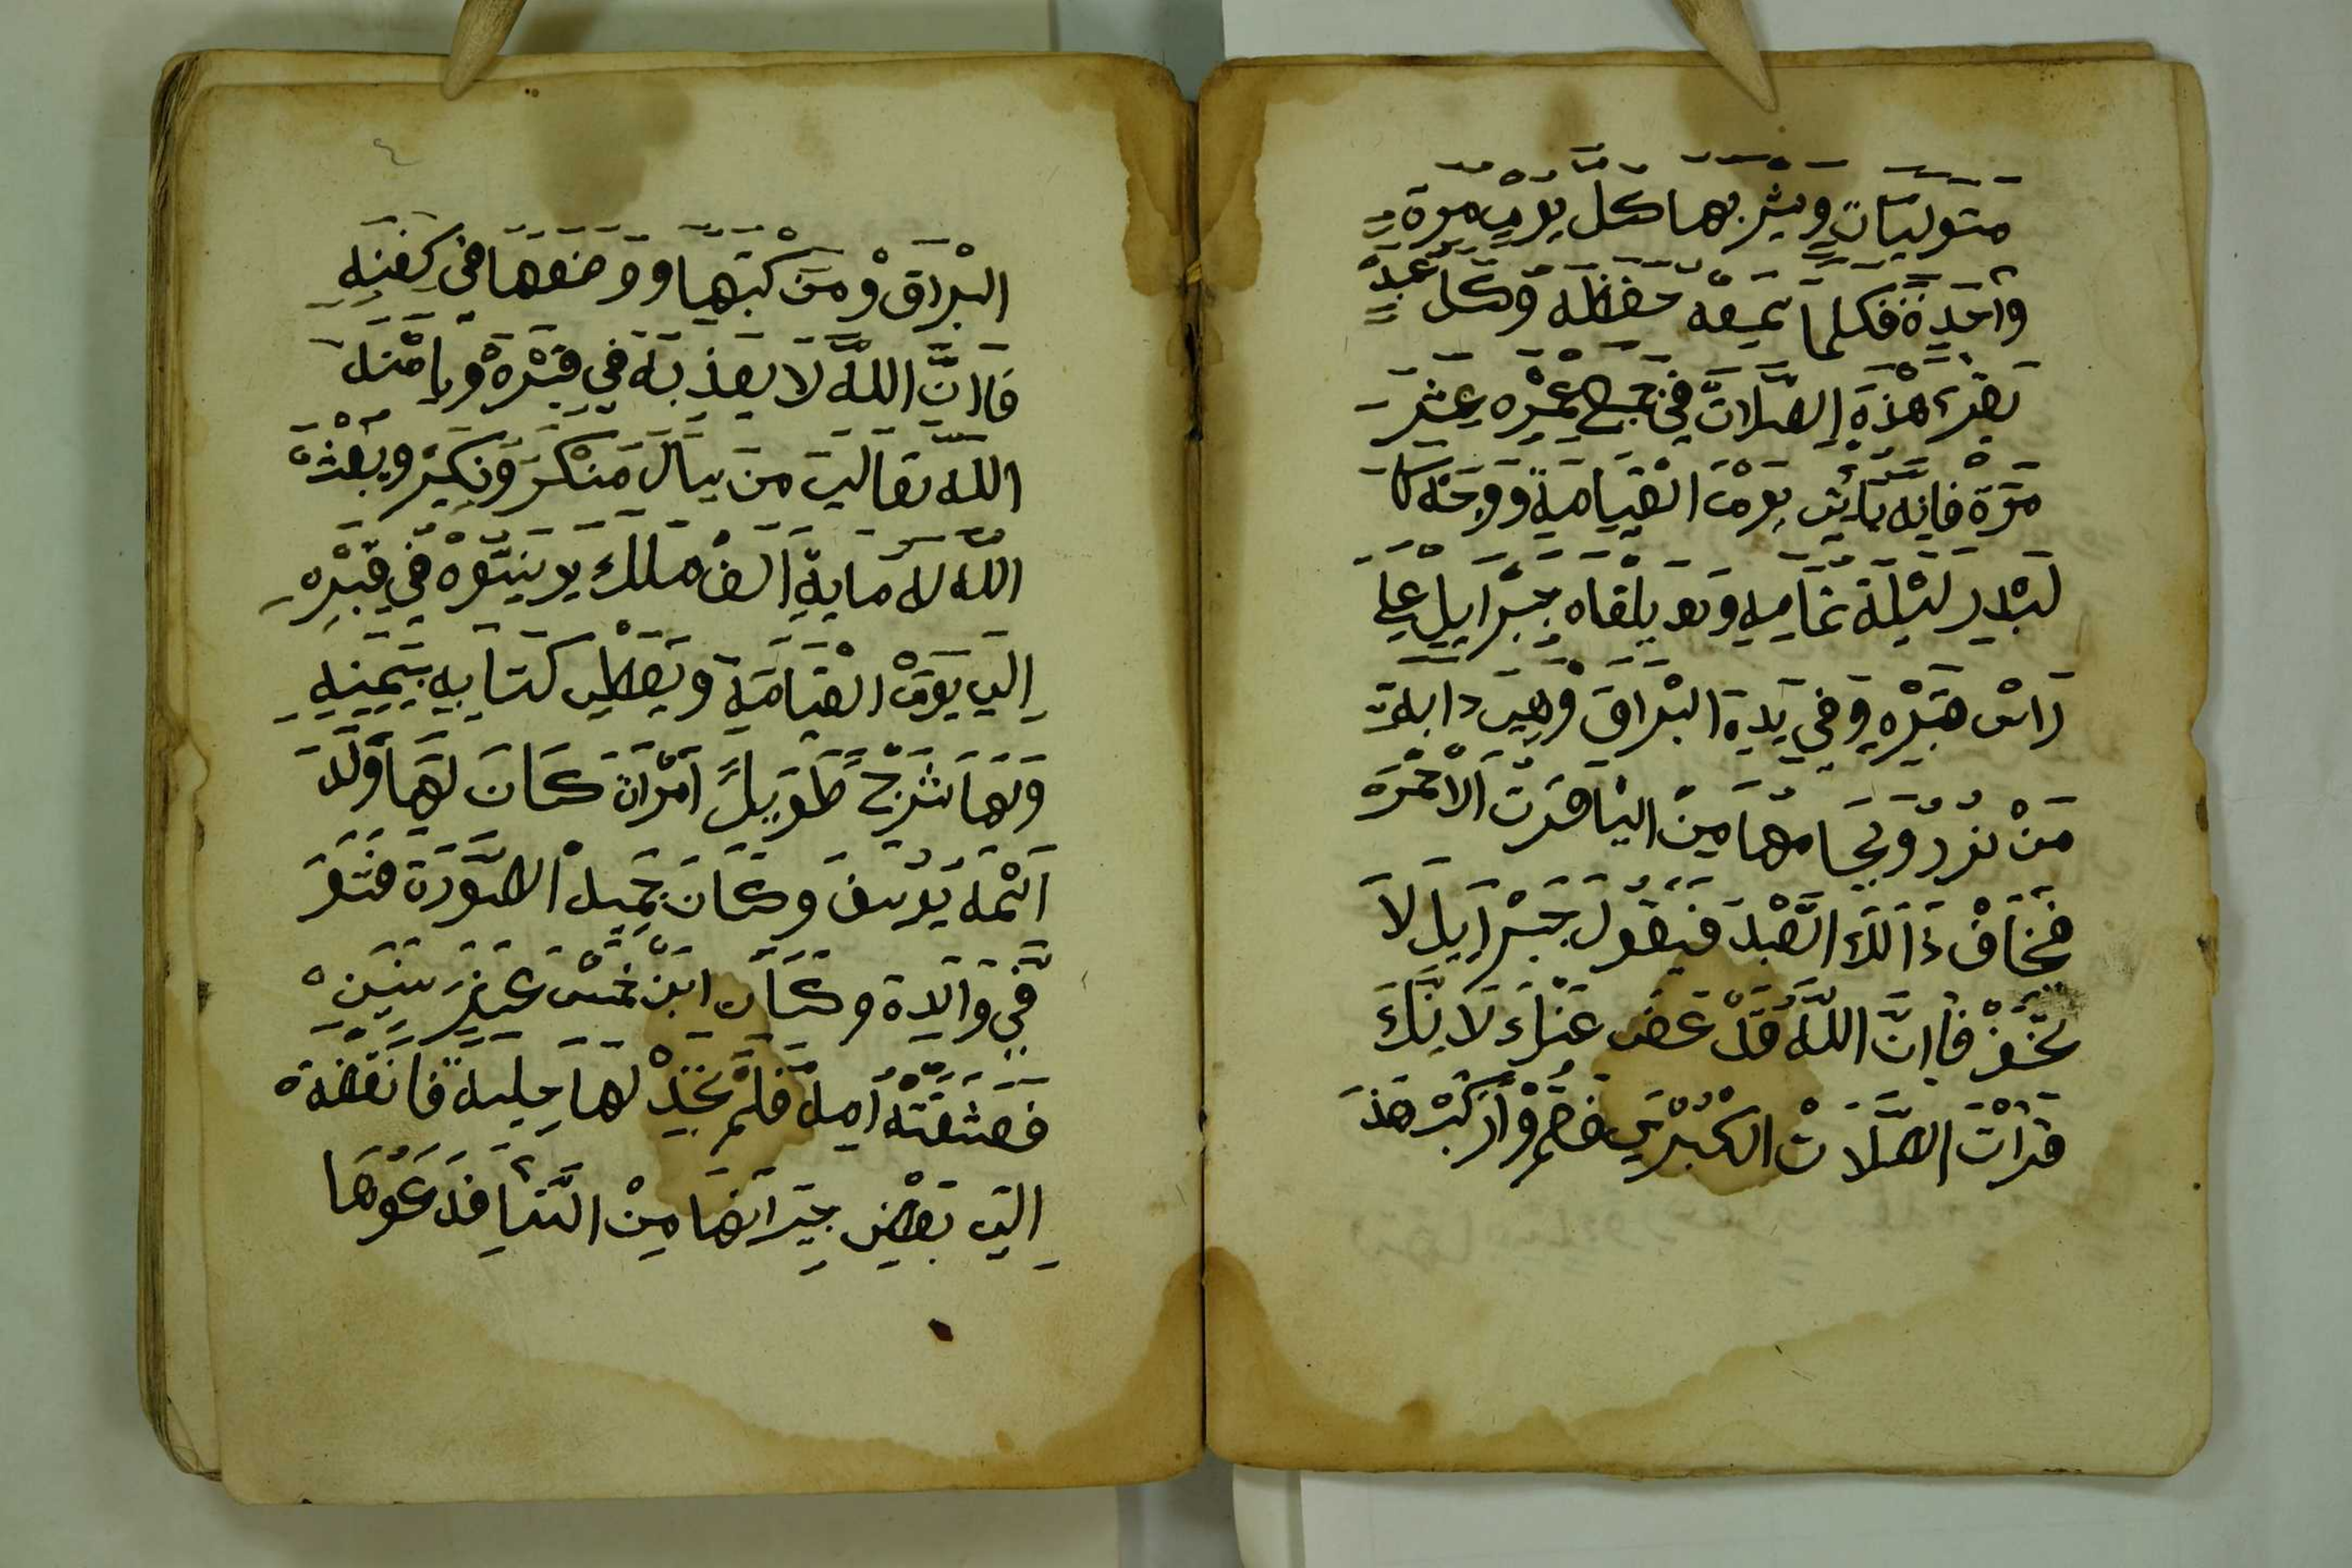 متوليات ويشربها كل يوم مرة
واحدة فكلما سمعه حفظه وكل عبد
يقرء هذه الصلات في جميع عمره عشر
مرة فإنه يأتي يوم القيامة ووجهه كا
لبدر ليلة تمامه و يلقاه جبرايل على
راس قبره وفي يده البراق وهي دابة
من نور ولجامها من الياقوت الاحمره
فيخاف ذالك العبد فيقول جبرايل لا
تخف فاان الله قد عفى عنك لانك
قرات الصلات الكبرى فقم واركب هذ
٤
البراق ومن كتبها ووضعها في كفنه
فاان الله لا يعذبه في قبره ويامنه
الله تعالى من سال منكر ونكير ويبعث
الله له ماية الف ملك يوينسوه في قبره
الى يوم القيامة ويعطى كتابه بيمينه
ولها شرح طويل امرات كان لها ولد
اسمه يوسف وكان جميل الصورة فتو
في والده وكان ابن خمس عشر سنين
فعشقته امه فلم تجد لها حيلة فانفظة
الى بعض جيرانها من النسا فدعوها